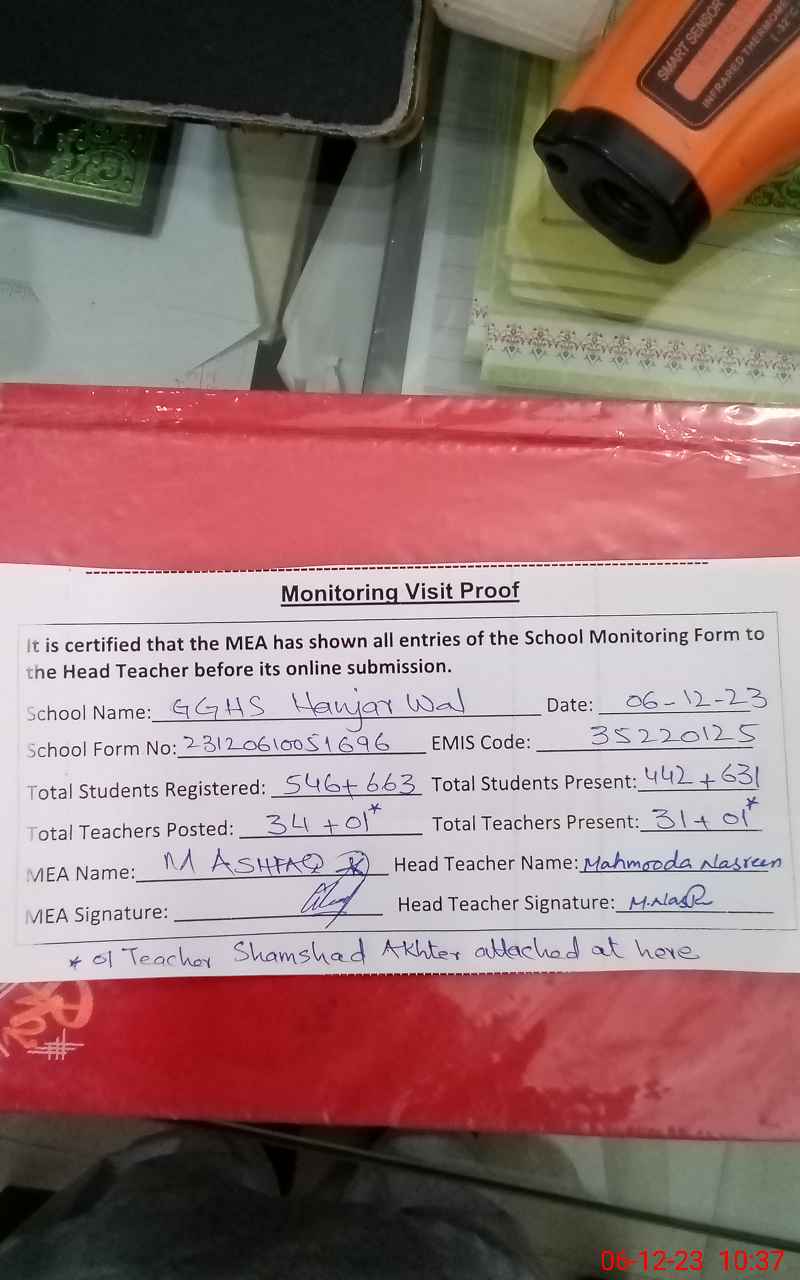 SMART SENSOR
INFRARED THERMOM
(-32°C
Monitoring Visit Proof
It is certified that the MEA has shown all entries of the School Monitoring Form to
the Head Teacher before its online submission.
School Name: GGHS Hanjar Wal Date: 06-12-23
School Form No: 23120610051696 EMIS Code: 35220125
Total Students Registered: 546+663 Total Students Present: 442+631
Total Teachers Posted: 34+01* Total Teachers Present: 31+01*
MEA Name: M ASHFAQ Head Teacher Name: Mahmooda Nasreen
MEA Signature: Head Teacher Signature: M.Nas
* 01 Teacher Shamshad Akhter attached at here
06-12-23 10:37